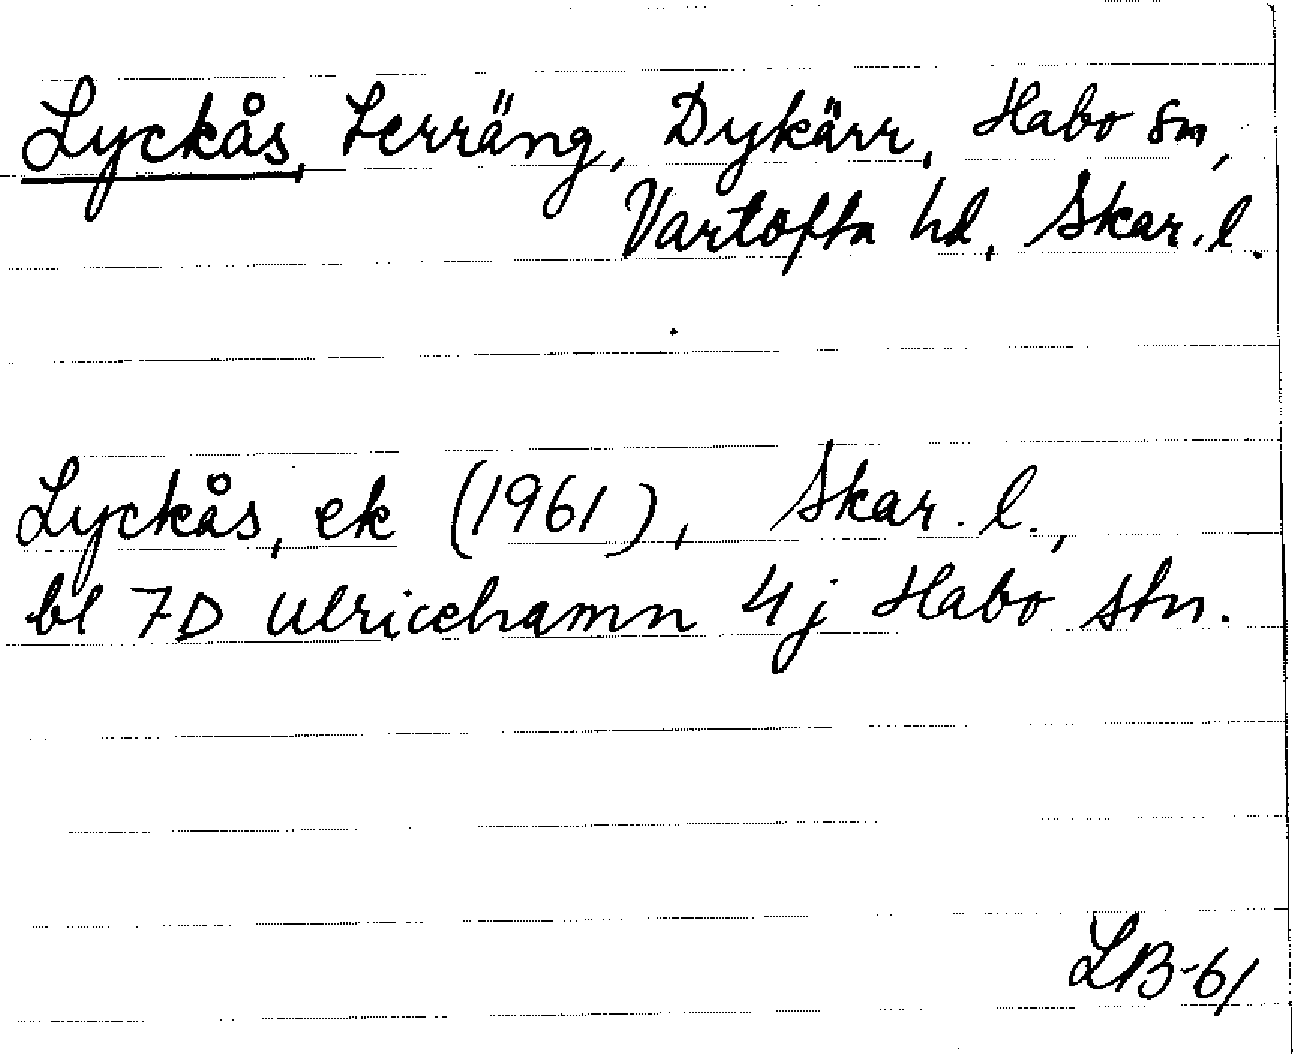 Lyckås, Lerräng, Dykärr, Habo sn,
Vartofta hd, Skar. l.
Lyckås, ek (1961), Skar. l.,
bl 7D Ulricehamn 4j Habo stn.
LB-61